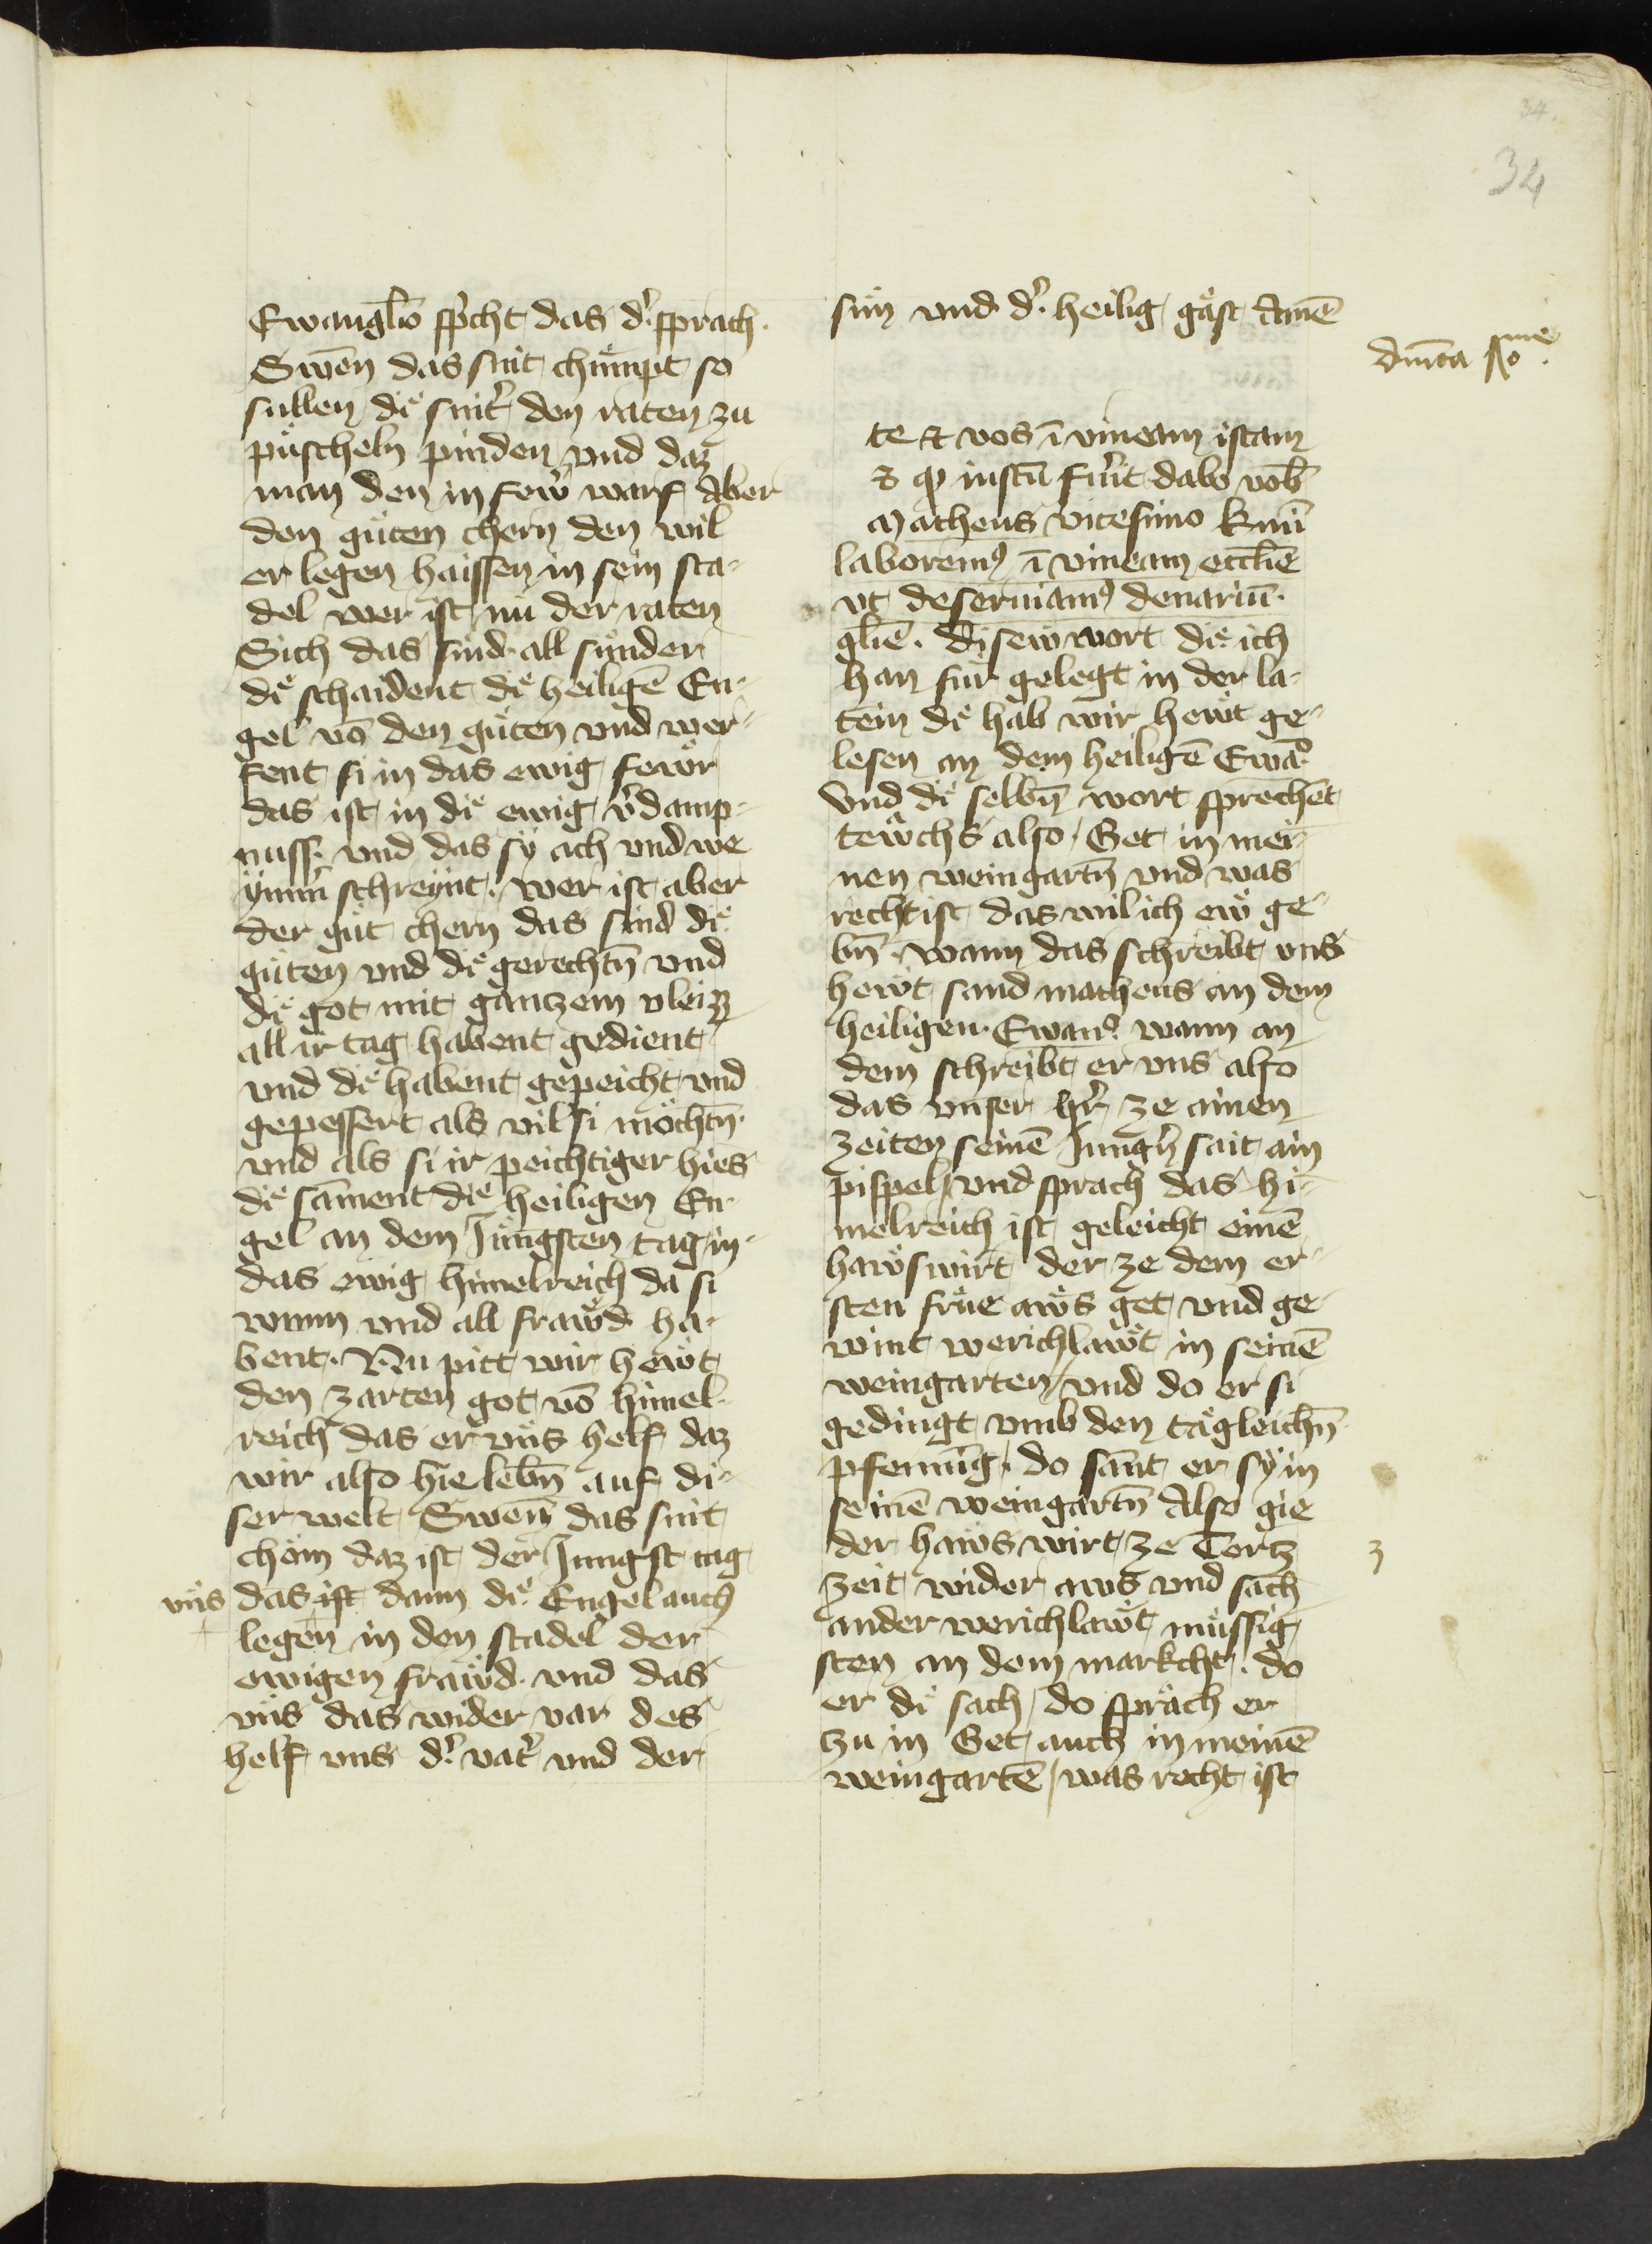 34.
34
Ewangl̄io sp̄icht das d'. sprach.
Swen̄ das snit chu̇mpt so
sullen die̊ snit' den raten zu
pu̇scheln pinden vnd daz
man den in few̎ warf Aber
den gu̇ten chern den wil
er legen haissen in sein sta-
del wer ist nu der raten
Sich das sind all sunder
die̊ schaident die̊ heiligē En-
gel vō den gu̇ten vnd wer-
fent si in das ewig few̎r
das ist in die̊ ewig v'damp-
nuss. vnd das sy ach vnd we
ym̄m' schreynt. wer ist aber
der gu̇t chern das sind die̊
gu̇ten vnd die̊ gerechtn̄ vnd
die̊ got mit gantzem vleizz
all ir tag habent gedient
vnd die̊ habent gepeicht vnd
gepessert als vil si mo̎chtn̄.
vnd als si ir peichtiger hies
die̊ sāment die̊ heiligen En-
gel an dem Jungsten tag in
das ewig himelreich da si
wunn vnd all fraw̎d ha-
bent. Nu pitt wir hew̎t
den zarten got vō himel-
reich das er vns helf daz
wir also hie lebn̄ auf di-
ser welt Swen̄ das snit
chom daz ist der Jungst tag
vns das ist dann die̊ Engel auch
legen̄ in den stadel der
ewigen fraw̎d. vnd das
vns das wider var des
helf vns d'. vat' vnd der
sun vnd d'. heilig ga̎st Amē
dm̄ca lxxme
te et vos ī vineam istam
et qd iustū fu'it dabo vob̄
Matheus vicesimo
laborem9 ī vineam eccl̄ie
vt deseruiam9 denariū.
gl̄ie. Disew̎ wort die̊ ich
han fu̎r gelegt in der la-
tein die̊ hab wir hew̎t ge-
lesen an dem heiligē Ewāo.
Vnd die̊ selbn̄ wort sprechēt
tew̎chs also. Get in mei-
nen weingartn̄ vnd was
recht ist das wil ich ew̎ ge-
bn̄. wann das schreibt vns
hew̎t sand matheus an dem
heiligen. Ewano. wann an
dem schreibt er vns also
das vnser hr̄ ze ainen
zeiten seinē Jung'n sait ain
pispel vnd sprach das hi-
melreich ist geleicht einē
haw̎swirt der ze dem er-
sten fru̎e aw̎s get vnd ge-
wint werichlaw̎t in seinē
weingarten vnd do er si
gedingt vmb den ta̎gleichn̄
pfennīg. do sān̄t er sy in
seinē weingartn̄ Also gie
der haw̎s wirt ze Tertz
3
zeit wider aws vnd sach
ander werichlaw̎t mu̎ssig
sten an dem markcht. do
er die̊ sach / do sprach er
zu in Get auch in meinē
weingartē / was recht ist